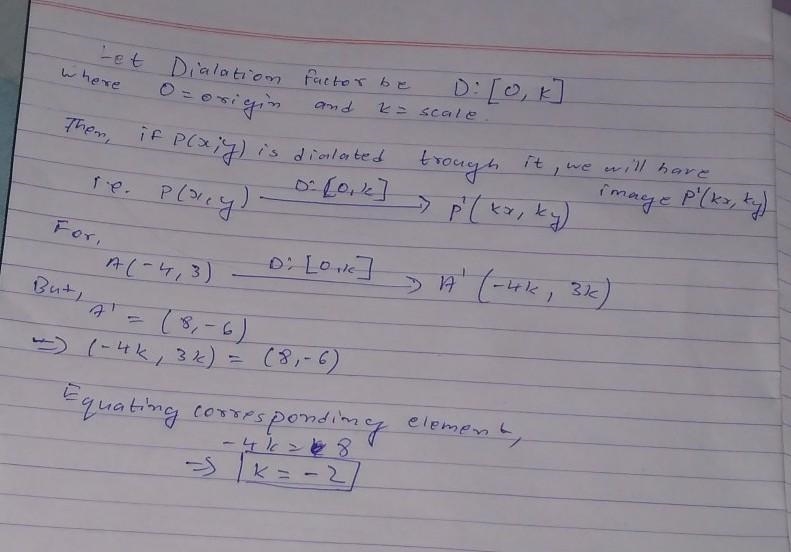 Let Dialation Factor be D: [O, K]
where O = origin and k = scale.
Then, if P(x,y) is dialated trough it, we will have image P'(kx, ky)
i.e. P(x, y) D: [O, k] → P'(kx, ky)
For,
A(-4, 3) D: [O, k] → A'(-4k, 3k)
But,
A' = (8, -6)
⇒ (-4k, 3k) = (8, -6)
Equating corresponding element,
-4k = 8
⇒ k = -2